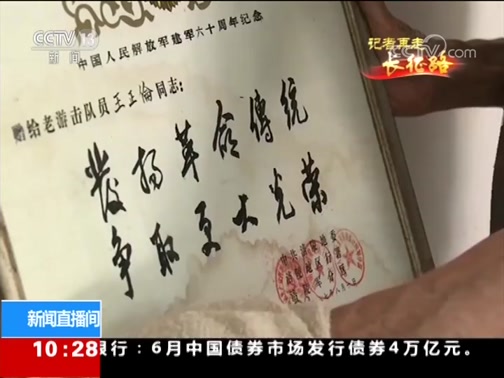 CCTV 13
新闻
CCTV.com
央视网
记者再走
长征路
中国人民解放军建军六十周年纪念
赠给老游击队员王正倫同志:
發扬革命傳统
争取更大光荣
新闻直播间
10:28
银行：6月中国债券市场发行债券4万亿元。